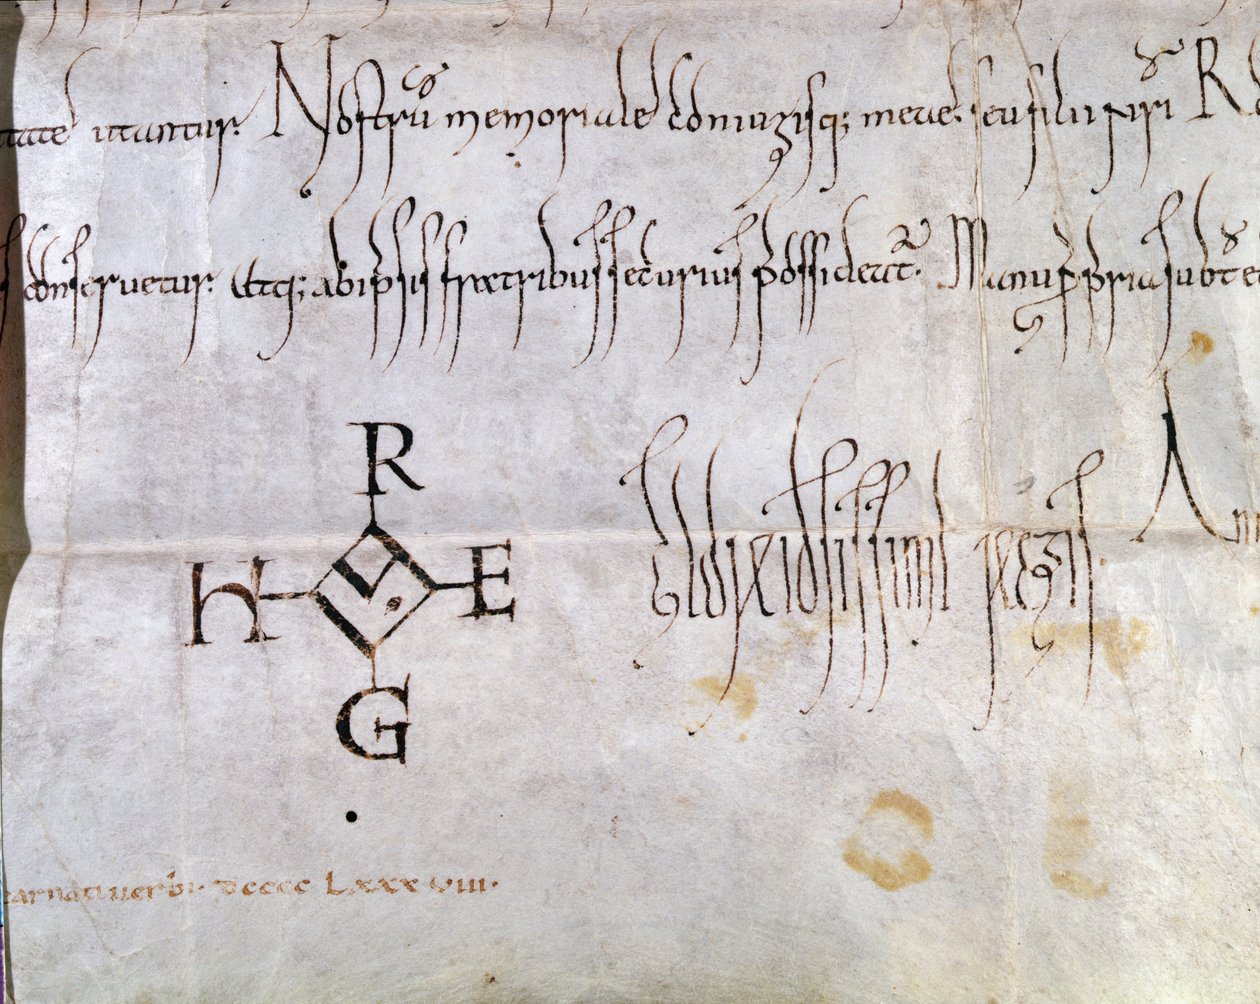 utantur. Nostrũ memoriale coniugisq; meae. seu filii nr̃i R
conseruetur. Et q; ab ipsis fratribus securius possideat̃. Manu ppria subte
R
H E
G
regis
carnati uerbi. dcccc Lxxx viii.